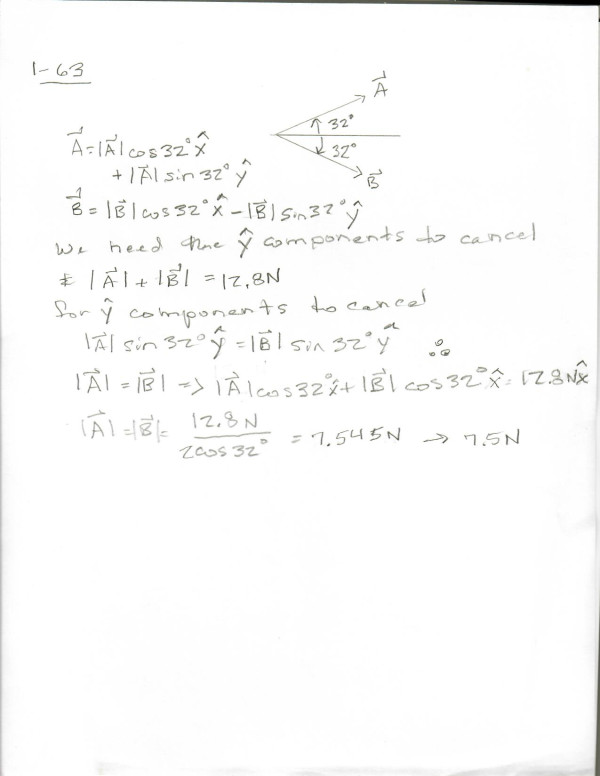 1-63
A⃗
32°
32°
B⃗
A⃗ = |A⃗| cos 32° x̂
+ |A⃗| sin 32° ŷ
B⃗ = |B⃗| cos 32° x̂ - |B⃗| sin 32° ŷ
We need the ŷ components to cancel
& |A⃗| + |B⃗| = 12.8N
for ŷ components to cancel
|A⃗| sin 32° ŷ = |B⃗| sin 32° ŷ ∴
|A⃗| = |B⃗| => |A⃗| cos 32° x̂ + |B⃗| cos 32° x̂ = 12.8N x̂
|A⃗| = |B⃗| = 12.8N / 2cos 32° = 7.545N → 7.5N